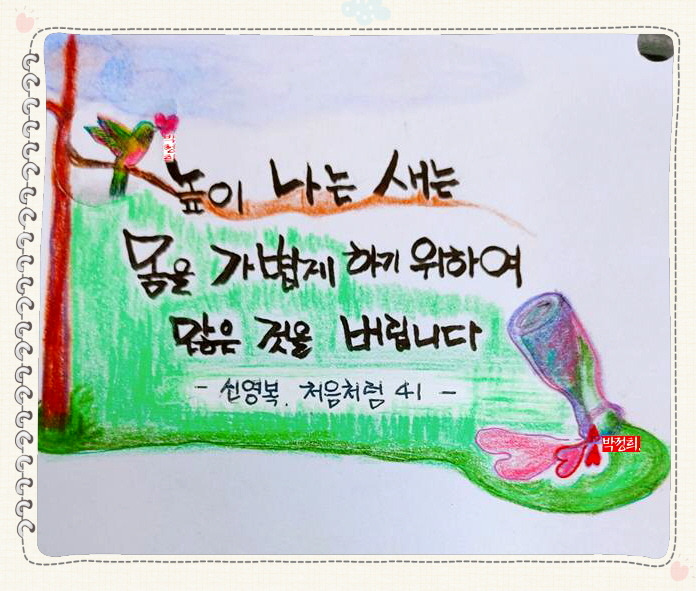 높이 나는 새는
몸을 가볍게 하기 위하여
많은 것을 버립니다
- 신영복. 처음처럼 41 -
박정희.